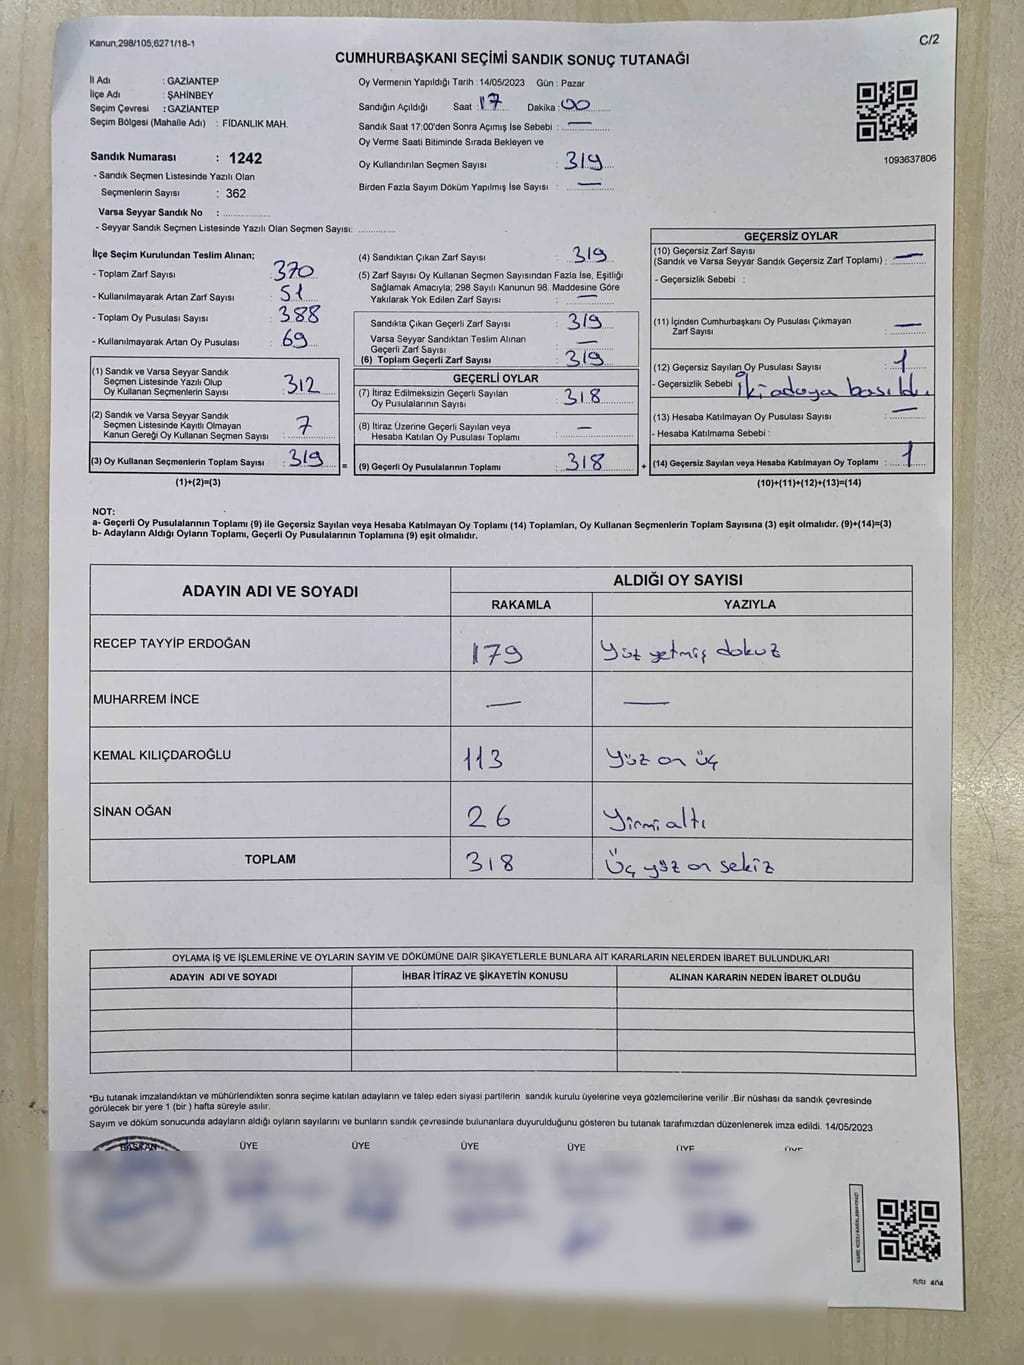 Kanun,298/105,6271/18-1
C/2
CUMHURBAŞKANI SEÇİMİ SANDIK SONUÇ TUTANAĞI
İl Adı : GAZİANTEP
İlçe Adı : ŞAHİNBEY
Seçim Çevresi : GAZİANTEP
Seçim Bölgesi (Mahalle Adı) : FİDANLIK MAH.
Sandık Numarası : 1242
- Sandık Seçmen Listesinde Yazılı Olan
Seçmenlerin Sayısı : 362
Varsa Seyyar Sandık No :
- Seyyar Sandık Seçmen Listesinde Yazılı Olan Seçmen Sayısı:
Oy Vermenin Yapıldığı Tarih : 14/05/2023 Gün : Pazar
Sandığın Açıldığı Saat : 17 Dakika : 00
Sandık Saat 17:00'den Sonra Açımış İse Sebebi : —
Oy Verme Saati Bitiminde Sırada Bekleyen ve
Oy Kullandırılan Seçmen Sayısı : 319
Birden Fazla Sayım Döküm Yapılmış İse Sayısı : —
1093637806
İlçe Seçim Kurulundan Teslim Alınan;
- Toplam Zarf Sayısı : 370
- Kullanılmayarak Artan Zarf Sayısı : 51
- Toplam Oy Pusulası Sayısı : 388
- Kullanılmayarak Artan Oy Pusulası : 69
(1) Sandık ve Varsa Seyyar Sandık
Seçmen Listesinde Yazılı Olup
Oy Kullanan Seçmenlerin Sayısı : 312
(2) Sandık ve Varsa Seyyar Sandık
Seçmen Listesinde Kayıtlı Olmayan
Kanun Gereği Oy Kullanan Seçmen Sayısı : 7
(3) Oy Kullanan Seçmenlerin Toplam Sayısı : 319
(1)+(2)=(3)
(4) Sandıktan Çıkan Zarf Sayısı : 319
(5) Zarf Sayısı Oy Kullanan Seçmen Sayısından Fazla İse, Eşitliği
Sağlamak Amacıyla; 298 Sayılı Kanunun 98. Maddesine Göre
Yakılarak Yok Edilen Zarf Sayısı : —
Sandıkta Çıkan Geçerli Zarf Sayısı : 319
Varsa Seyyar Sandıktan Teslim Alınan
Geçerli Zarf Sayısı : —
(6) Toplam Geçerli Zarf Sayısı : 319
GEÇERLİ OYLAR
(7) İtiraz Edilmeksizin Geçerli Sayılan
Oy Pusulalarının Sayısı : 318
(8) İtiraz Üzerine Geçerli Sayılan veya
Hesaba Katılan Oy Pusulası Toplamı : —
= (9) Geçerli Oy Pusulalarının Toplamı : 318 +
GEÇERSİZ OYLAR
(10) Geçersiz Zarf Sayısı
(Sandık ve Varsa Seyyar Sandık Geçersiz Zarf Toplamı) : —
- Geçersizlik Sebebi :
(11) İçinden Cumhurbaşkanı Oy Pusulası Çıkmayan
Zarf Sayısı : —
(12) Geçersiz Sayılan Oy Pusulası Sayısı : 1
- Geçersizlik Sebebi : İki adaya basıldı.
(13) Hesaba Katılmayan Oy Pusulası Sayısı : —
- Hesaba Katılmama Sebebi :
(14) Geçersiz Sayılan veya Hesaba Katılmayan Oy Toplamı : 1
(10)+(11)+(12)+(13)=(14)
NOT:
a- Geçerli Oy Pusulalarının Toplamı (9) ile Geçersiz Sayılan veya Hesaba Katılmayan Oy Toplamı (14) Toplamları, Oy Kullanan Seçmenlerin Toplam Sayısına (3) eşit olmalıdır. (9)+(14)=(3)
b- Adayların Aldığı Oyların Toplamı, Geçerli Oy Pusulalarının Toplamına (9) eşit olmalıdır.
ADAYIN ADI VE SOYADI ALDIĞI OY SAYISI
RAKAMLA YAZIYLA
RECEP TAYYİP ERDOĞAN 179 Yüz yetmiş dokuz
MUHARREM İNCE — —
KEMAL KILIÇDAROĞLU 113 Yüz on üç
SİNAN OĞAN 26 Yirmi altı
TOPLAM 318 Üç yüz on sekiz
OYLAMA İŞ VE İŞLEMLERİNE VE OYLARIN SAYIM VE DÖKÜMÜNE DAİR ŞİKAYETLERLE BUNLARA AİT KARARLARIN NELERDEN İBARET BULUNDUKLARI
ADAYIN ADI VE SOYADI İHBAR İTİRAZ VE ŞİKAYETİN KONUSU ALINAN KARARIN NEDEN İBARET OLDUĞU
*Bu tutanak imzalandıktan ve mühürlendikten sonra seçime katılan adayların ve talep eden siyasi partilerin sandık kurulu üyelerine veya gözlemcilerine verilir .Bir nüshası da sandık çevresinde
görülecek bir yere 1 (bir ) hafta süreyle asılır.
Sayım ve döküm sonucunda adayların aldığı oyların sayılarını ve bunların sandık çevresinde bulunanlara duyurulduğunu gösteren bu tutanak tarafımızdan düzenlenerek imza edildi. 14/05/2023
BAŞKAN ÜYE ÜYE ÜYE ÜYE ÜYE ÜYE